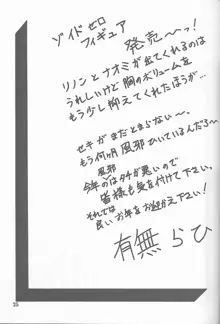 ゾイドゼロ
フィギュア
発売～～!
リノンとナオミが出てくれるのは
うれしいけど胸のボリュームを
もう少し抑えてくれたほうが…
セキがまだとまらない～。
もう何ヶ月風邪ひいているんだろ～
今年の風邪はタチが悪いので
皆様も気を付けて下さい。
それでは
良いお年をお迎え下さい!
有無らひ
25